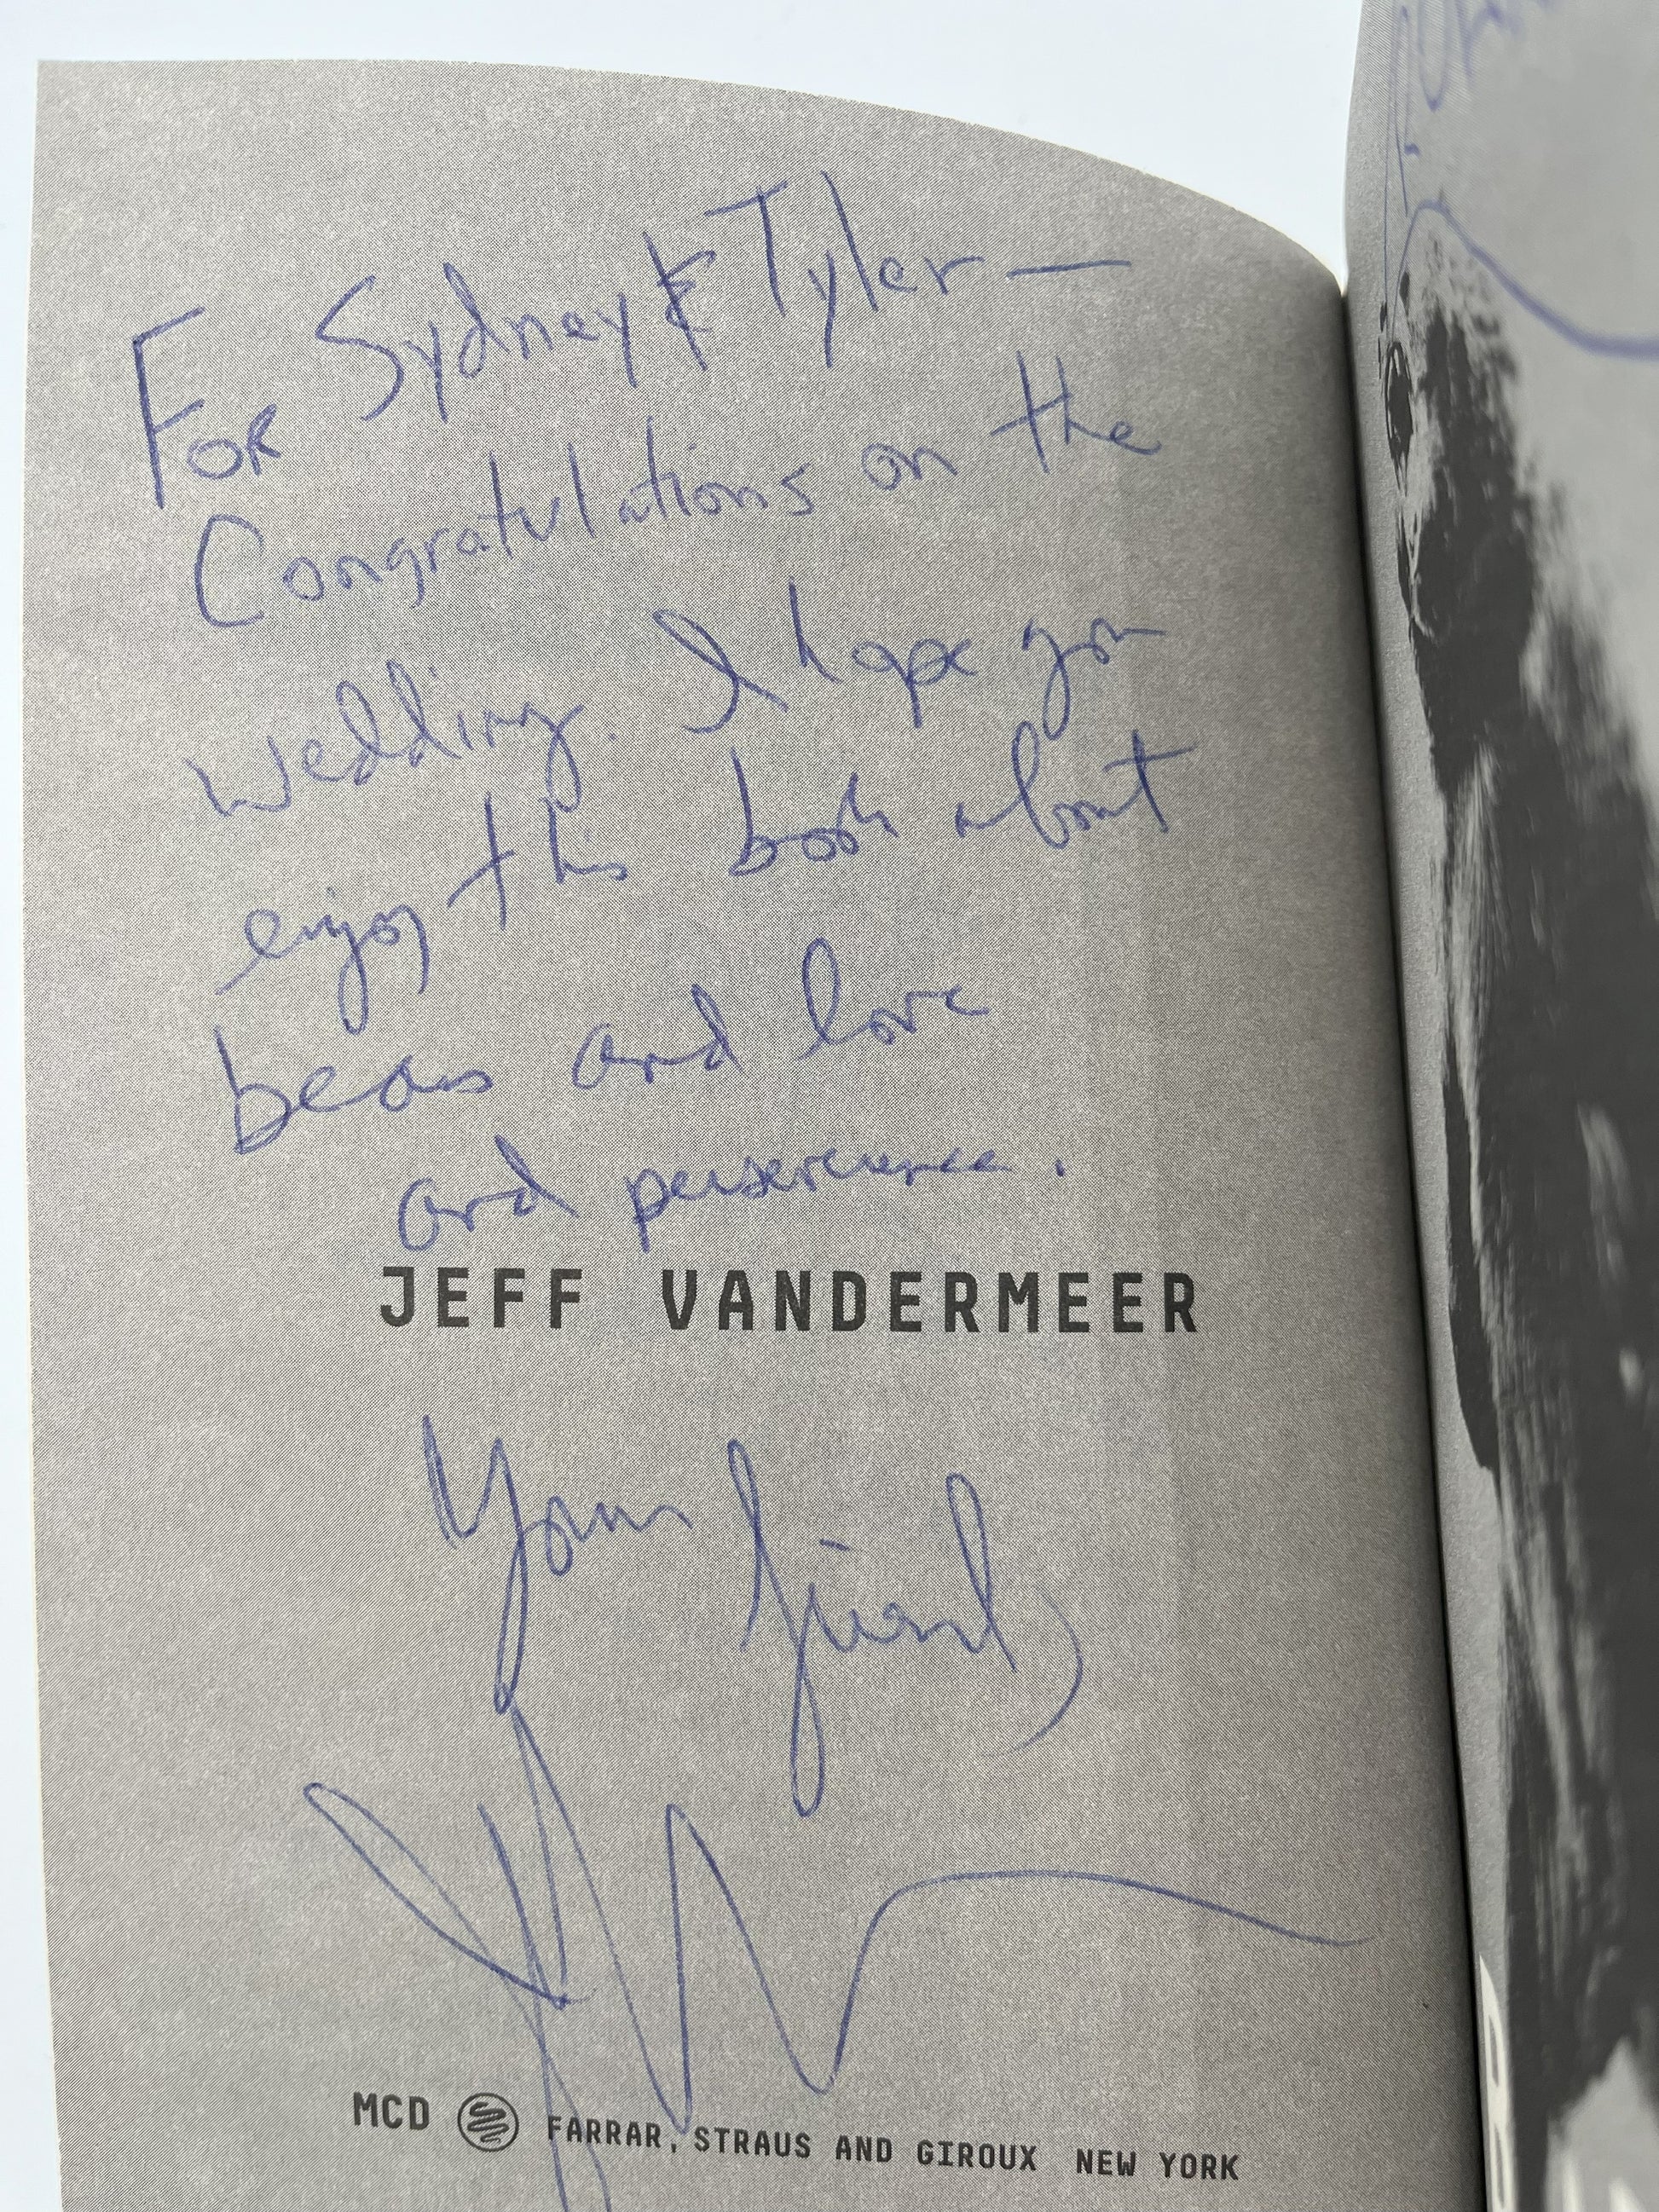 For Sydney & Tyler —
Congratulations on the
wedding. I hope you
enjoy this book about
bears and love
and perseverance.
JEFF VANDERMEER
Your friend,
MCD FARRAR, STRAUS AND GIROUX NEW YORK